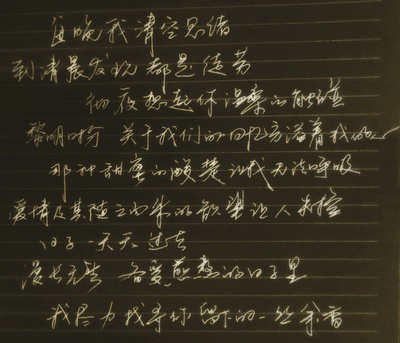 每晚我清空思绪
到清晨发现都是徒劳
彻夜想起你温柔的触碰
黎明时分 关于我们的回忆充溢着我的心
那种甜蜜的酸楚让我无法呼吸
爱情及其随之而来的欲望让人失控
日子一天天过去
漫长无望 备受煎熬的日子里
我尽力找寻你留下的一丝余香